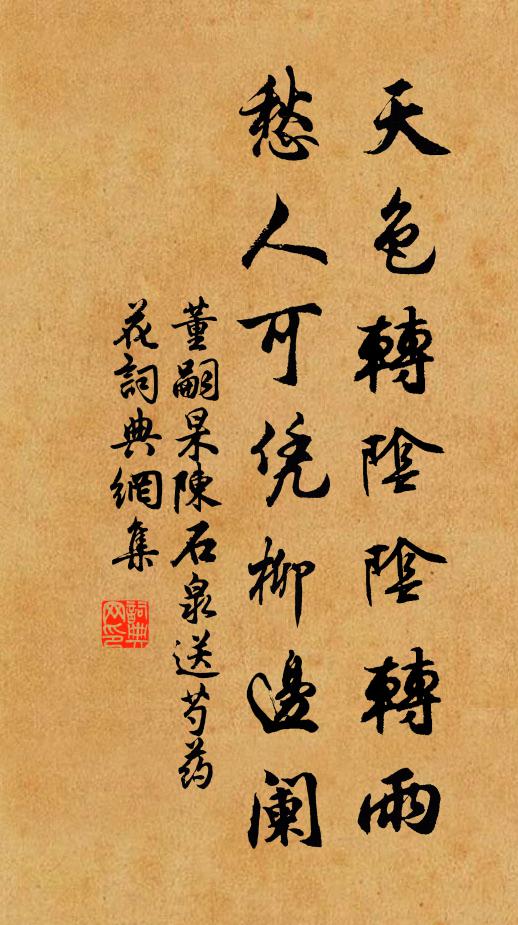 天色轉陰陰轉雨
愁人可凭柳邊阑
董嗣杲陳石泉送芍药
花詞典網集
詞典网印